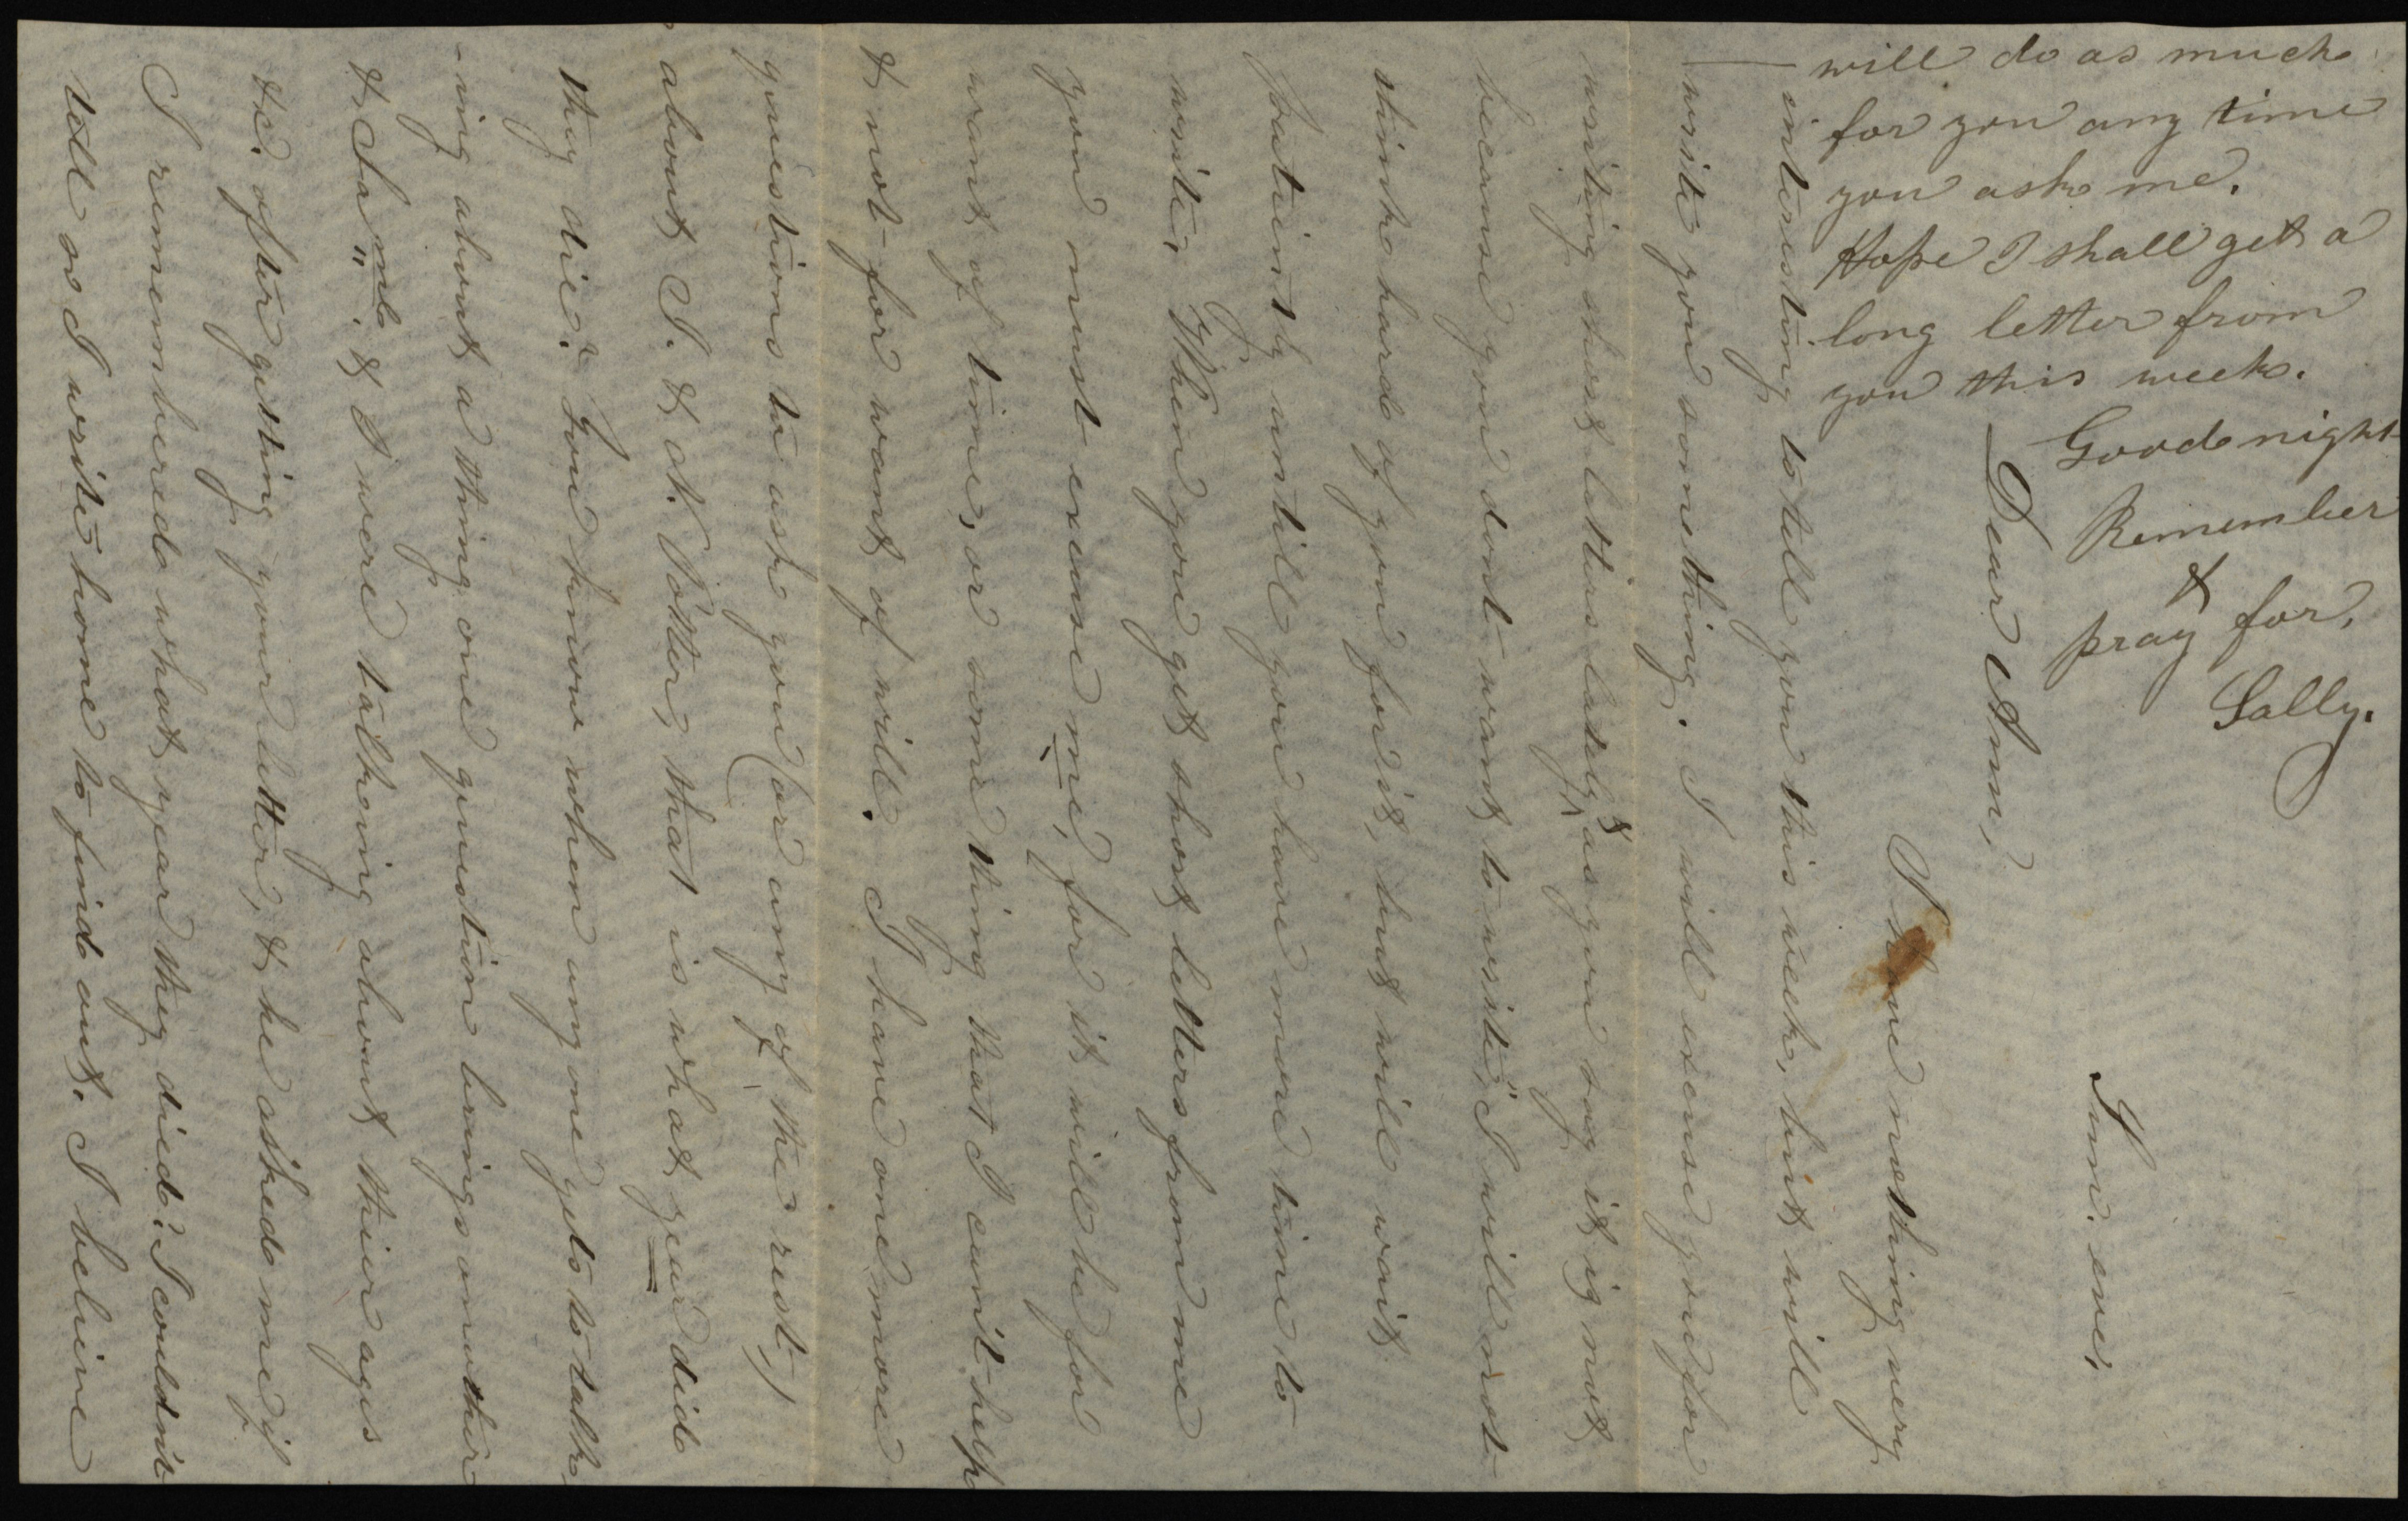 Sun. eve,
Dear Ann,
I have nothing very
interesting to tell you this week, but will
write you something. I will excuse you for
writing short letters lately, & "as you say it is not
because you dont want to write," I will not
think hard of you for it, but will wait
patiently untill you have more time to
write. When you get short letters from me
you must excuse me, for it will be for
want of time, or some thing that I cant help
& not for want of will. I have one more
questions to ask you (or any of the rest,)
about S. & A. Potter, that is what year did
they die? You know when any one gets to talk
-ing about a thing one question brings another
& Saml. & I were talkeing about thier ages
&c. after getting your letter, & he asked me if
I remembered what year they died? I couldnt
tell so I write home to find out. I believe
will do as much
for you any time
you ask me.
Hope I shall get a
long letter from
you this week.
Good night
Remember
&
pray for,
Sally.